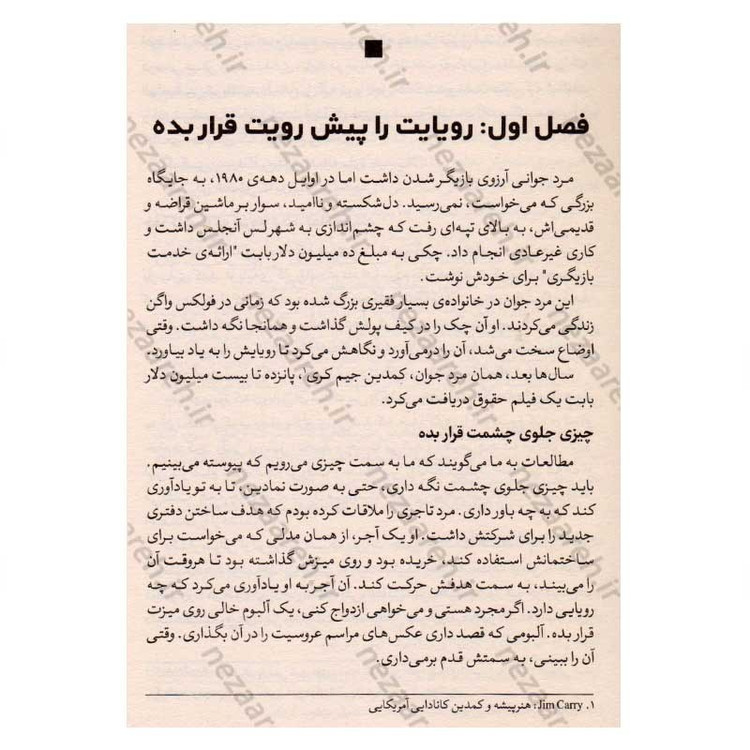 فصل اول: رویایت را پیش رویت قرار بده
مرد جوانی آرزوی بازیگر شدن داشت اما در اوایل دهه‌ی ۱۹۸۰، به جایگاه
بزرگی که می‌خواست، نمی‌رسید. دل‌شکسته و ناامید، سوار بر ماشین قراضه و
قدیمی‌اش، به بالای تپه‌ای رفت که چشم‌اندازی به شهر لس آنجلس داشت و
کاری غیرعادی انجام داد. چکی به مبلغ ده میلیون دلار بابت "ارائه‌ی خدمت
بازیگری" برای خودش نوشت.
این مرد جوان در خانواده‌ی بسیار فقیری بزرگ شده بود که زمانی در فولکس واگن
زندگی می‌کردند. او آن چک را در کیف پولش گذاشت و همانجا نگه داشت. وقتی
اوضاع سخت می‌شد، آن را درمی‌آورد و نگاهش می‌کرد تا رویایش را به یاد بیاورد.
سال‌ها بعد، همان مرد جوان، کمدین جیم کری، پانزده تا بیست میلیون دلار
بابت یک فیلم حقوق دریافت می‌کرد.
چیزی جلوی چشمت قرار بده
مطالعات به ما می‌گویند که ما به سمت چیزی می‌رویم که پیوسته می‌بینیم.
باید چیزی جلوی چشمت نگه داری، حتی به صورت نمادین، تا به تو یادآوری
کند که به چه باور داری. مرد تاجری را ملاقات کرده بودم که هدف ساختن دفتری
جدید را برای شرکتش داشت. او یک آجر، از همان مدلی که می‌خواست برای
ساختمانش استفاده کند، خریده بود و روی میزش گذاشته بود تا هروقت آن
را می‌بیند، به سمت هدفش حرکت کند. آن آجر به او یادآوری می‌کرد که چه
رویایی دارد. اگر مجرد هستی و می‌خواهی ازدواج کنی، یک آلبوم خالی روی میزت
قرار بده. آلبومی که قصد داری عکس‌های مراسم عروسیت را در آن بگذاری. وقتی
آن را ببینی، به سمتش قدم برمی‌داری.
۱. Jim Carry: هنرپیشه و کمدین کانادایی آمریکایی
nezaareh.ir